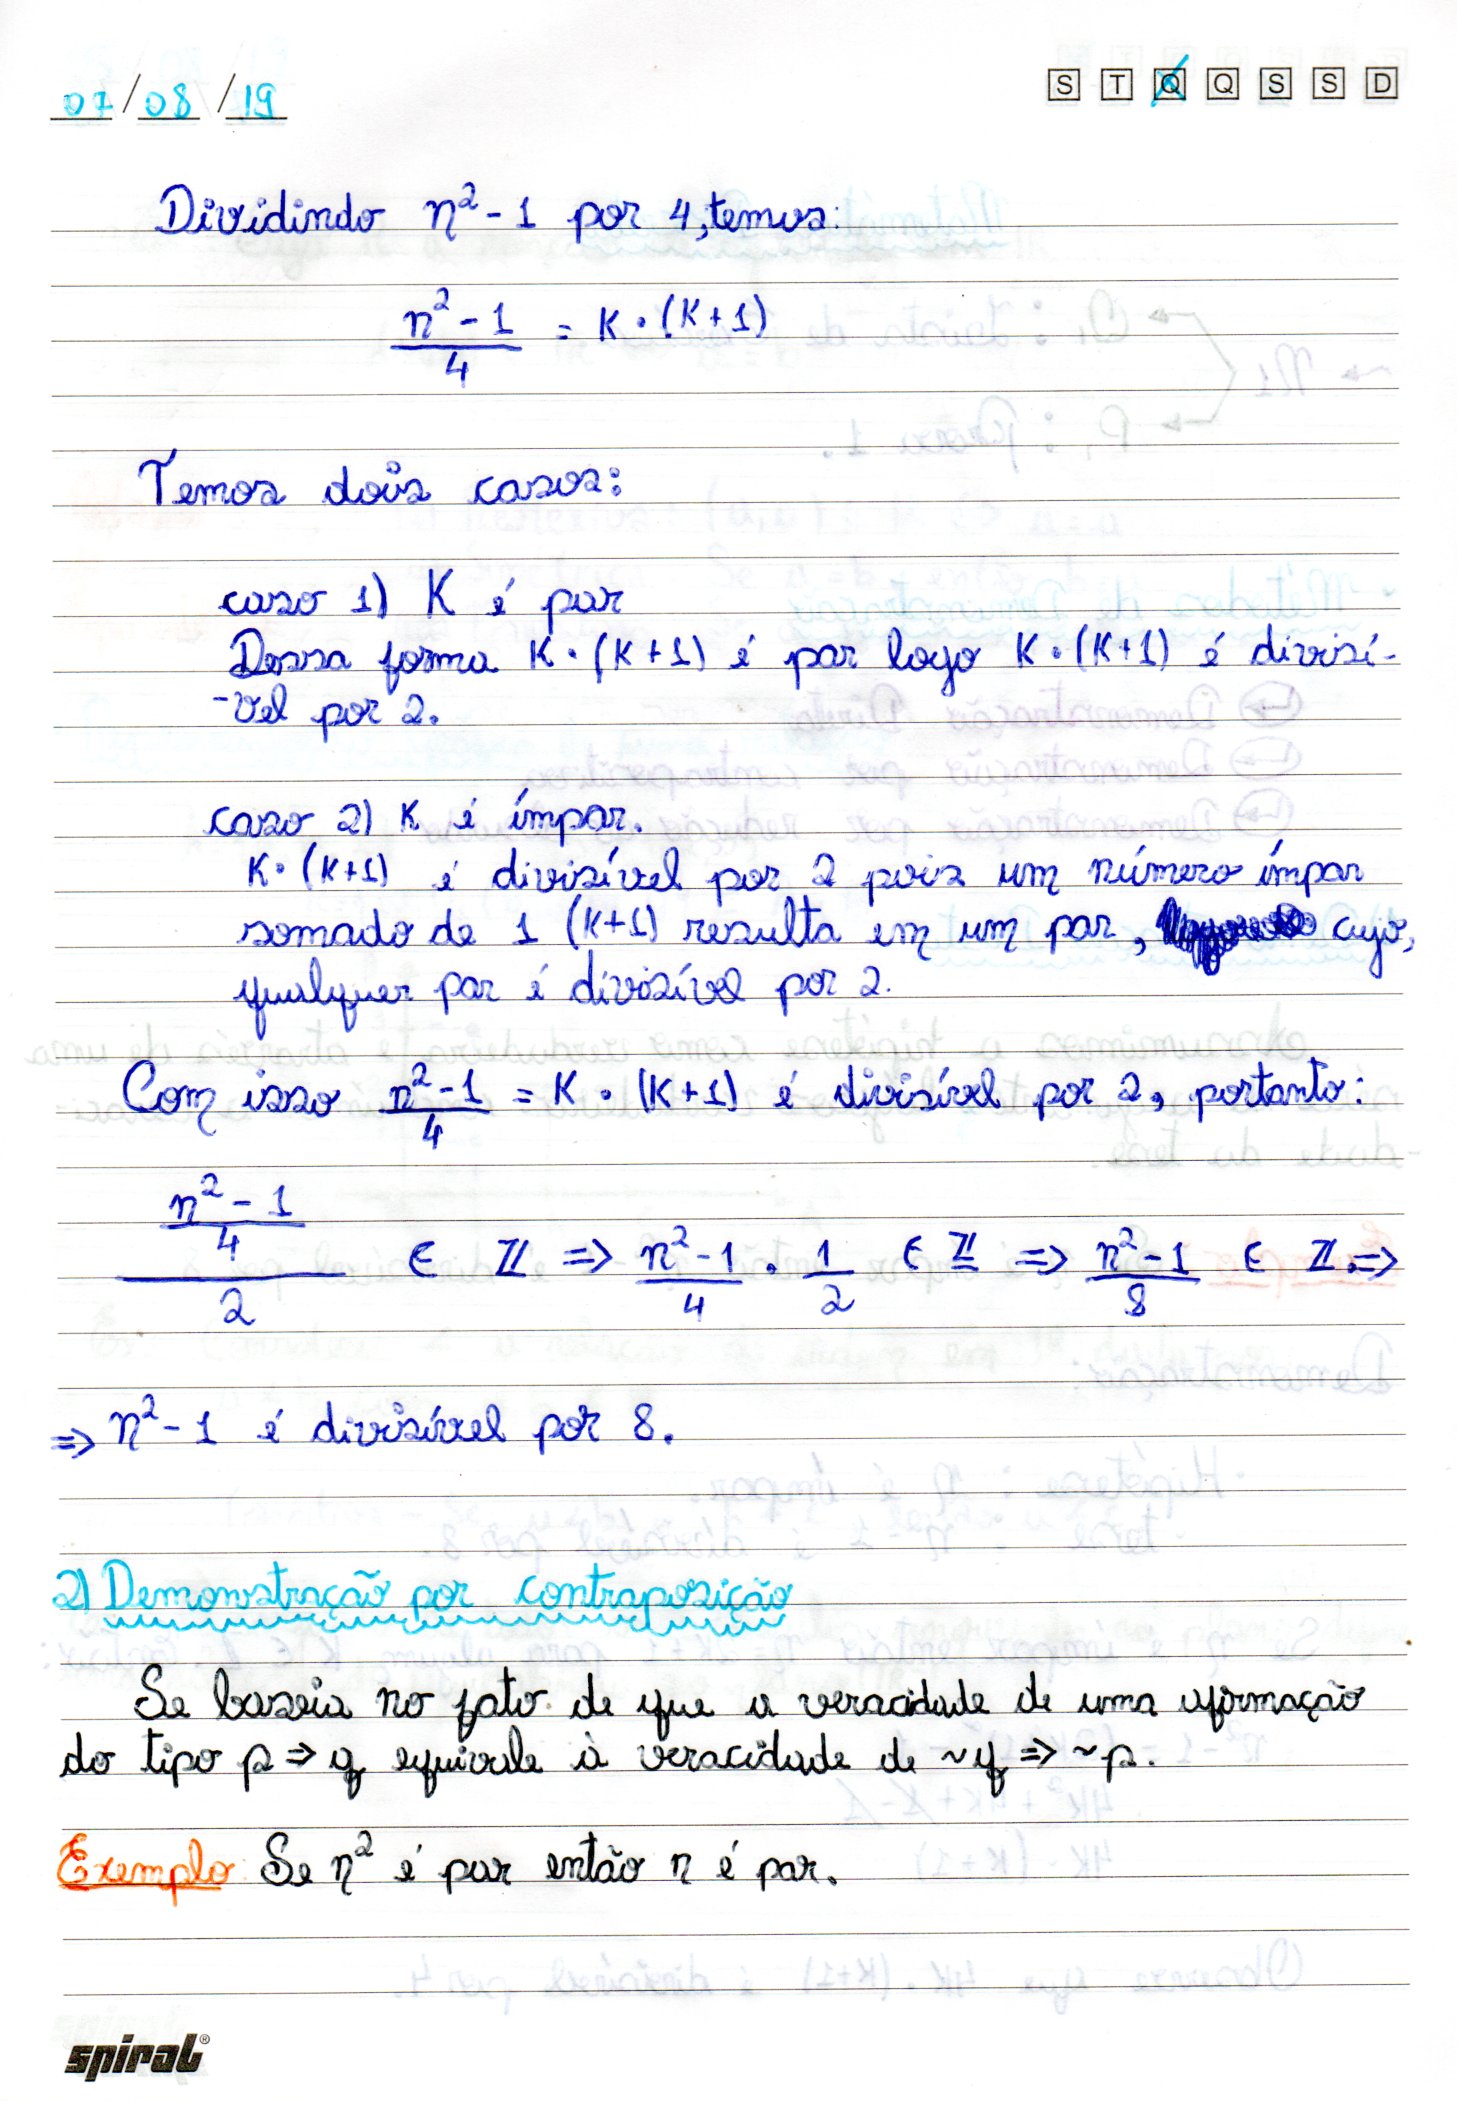 07/08/19
S T Q Q S S D
Dividindo n² - 1 por 4, temos:
n² - 1 / 4 = K · (K + 1)
Temos dois casos:
caso 1) K é par
Dessa forma K · (K + 1) é par logo K · (K + 1) é divisí-
-vel por 2.
caso 2) K é ímpar.
K · (K+1) é divisível por 2 pois um número ímpar
somado de 1 (K+1) resulta em um par, cujo,
qualquer par é divisível por 2.
Com isso n² - 1 / 4 = K · (K + 1) é divisível por 2, portanto:
n² - 1 / 4 / 2 ∈ ℤ ⇒ n² - 1 / 4 · 1 / 2 ∈ ℤ ⇒ n² - 1 / 8 ∈ ℤ ⇒
⇒ n² - 1 é divisível por 8.
2) Demonstração por contraposição
Se baseia no fato de que a veracidade de uma afirmação
do tipo p ⇒ q equivale à veracidade de ~q ⇒ ~p.
Exemplo: Se n² é par então n é par.
spiral®